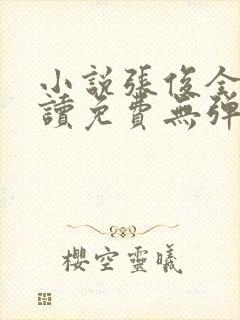 小説張俊全
讀免費無彈
櫻空靈曦